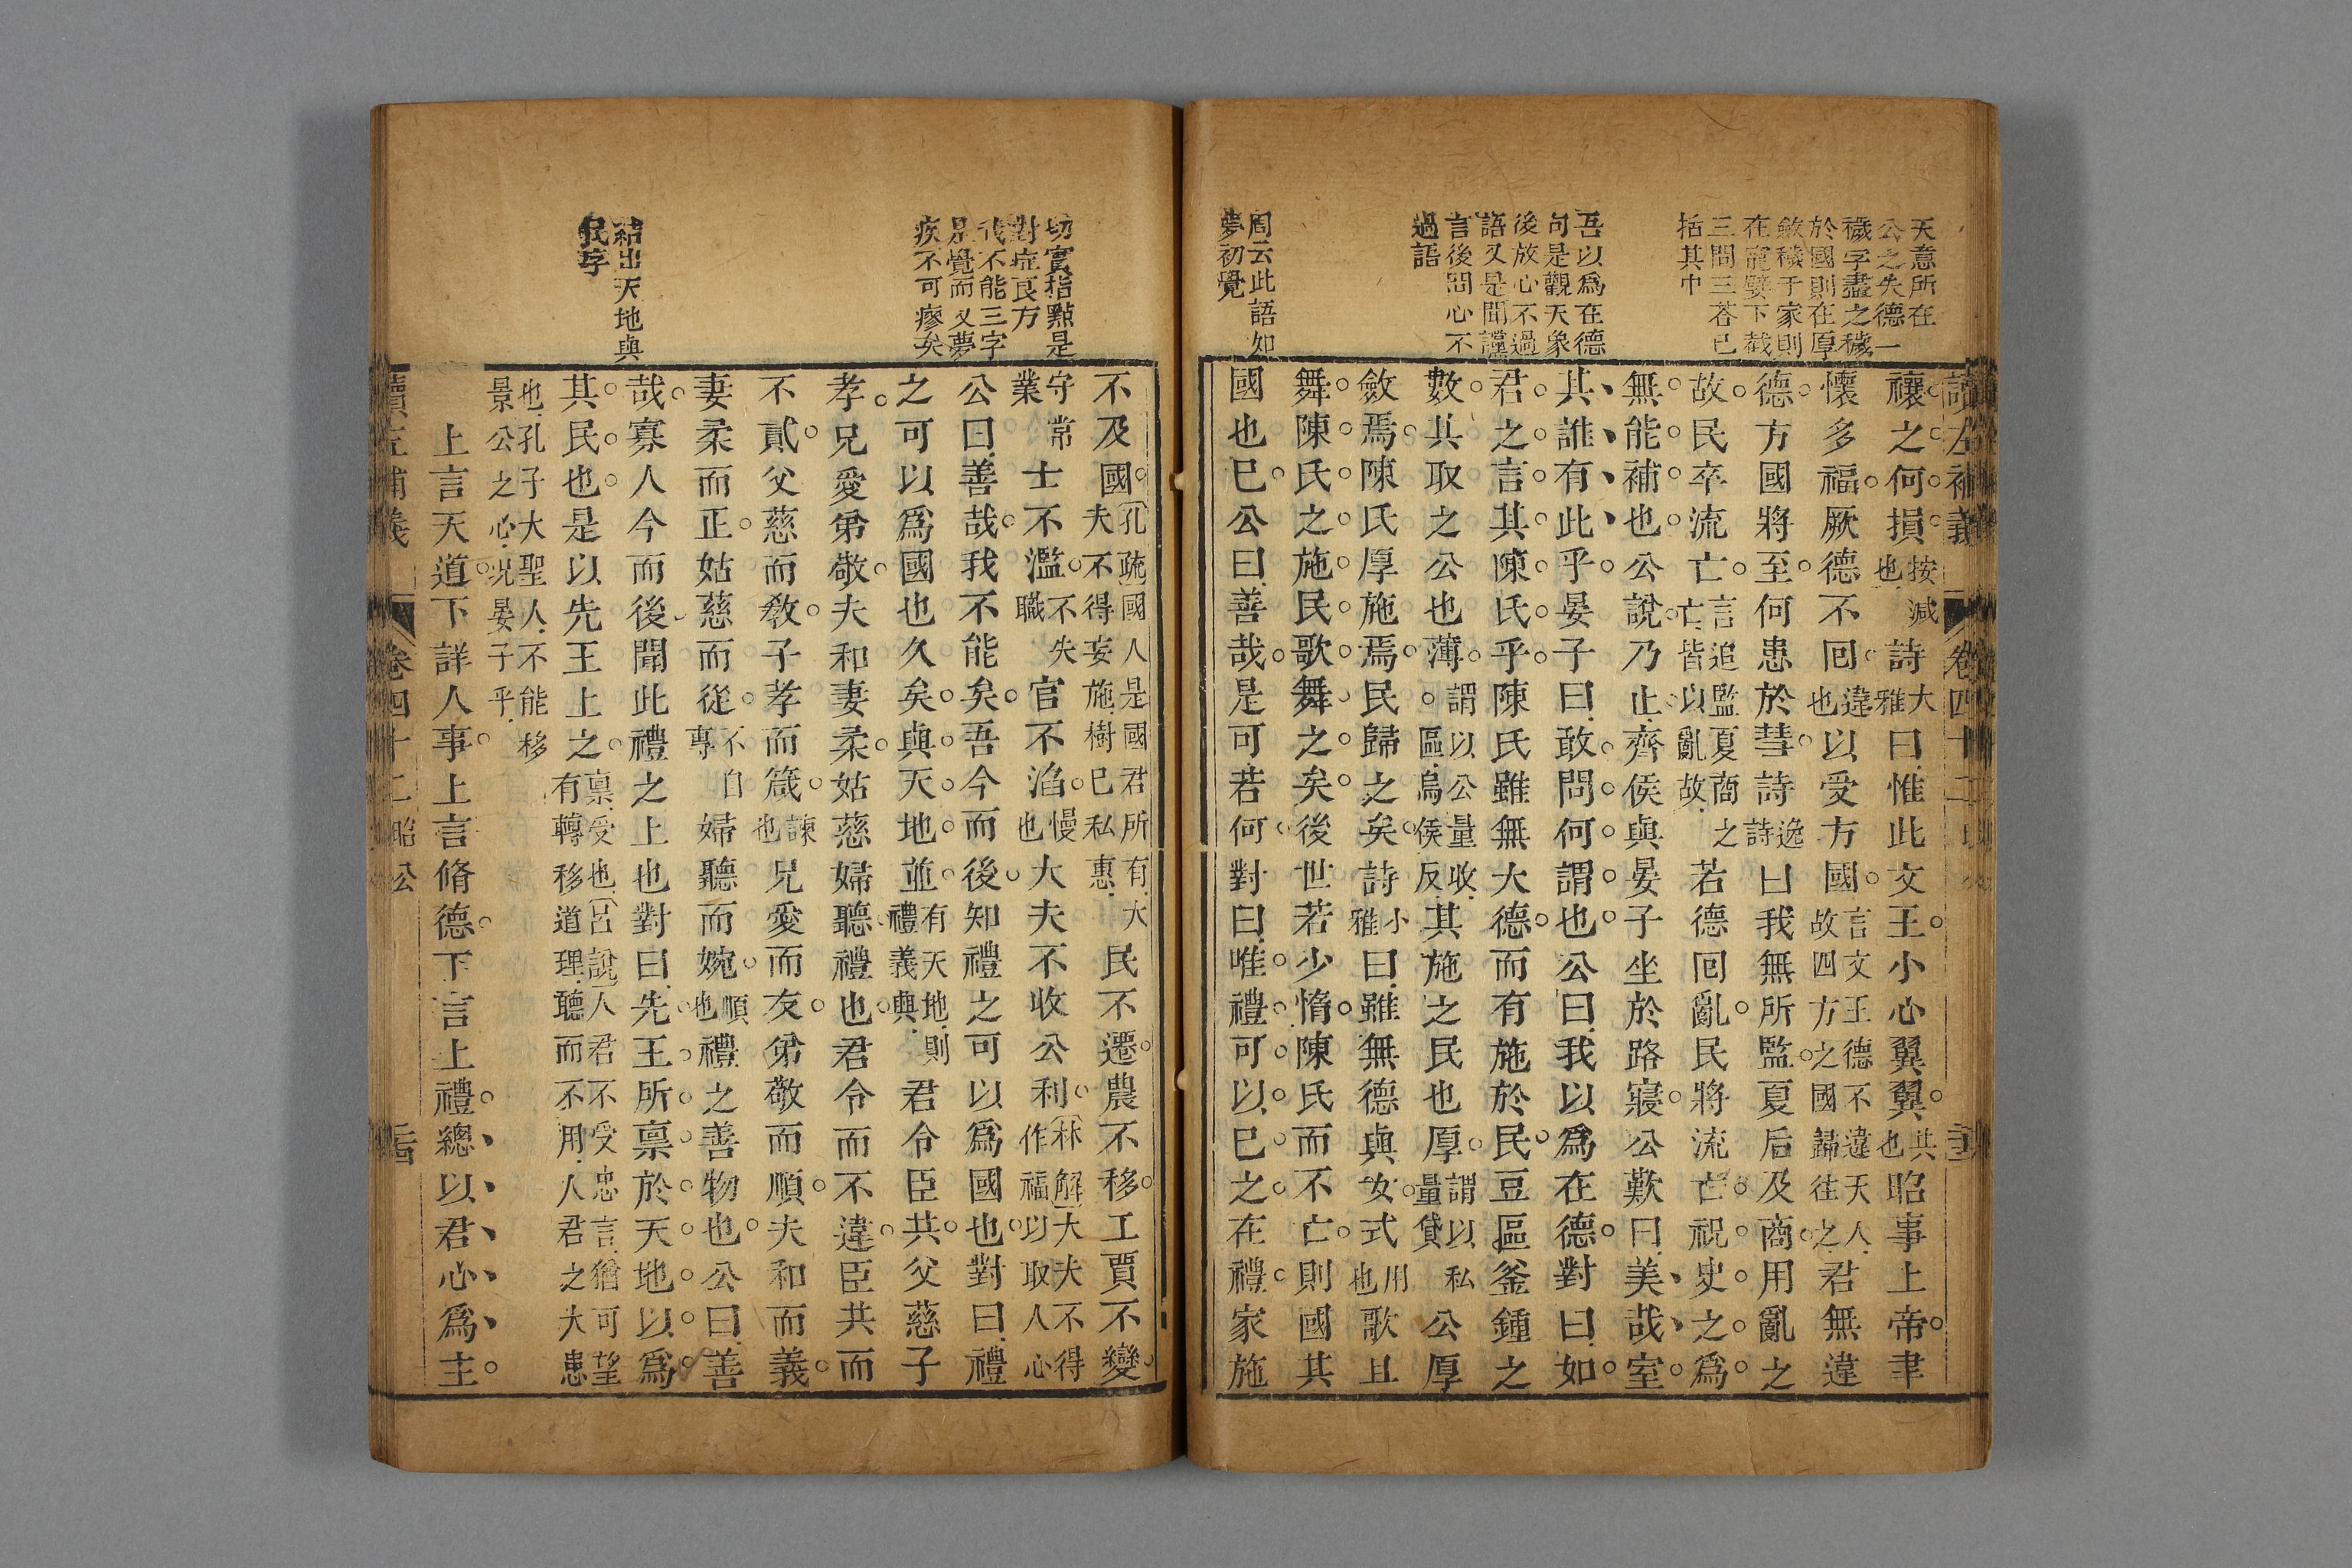 天意所在
公之失德一
穢字盡之穢
於國則在厚
斂穢于家則
在寵嬖下截
三問三荅已
括其中
吾以爲在德
句是觀天象
後放心不過
語又是聞讜
言後問心不
過語
周云此語如
夢初覺
讀左補義 卷四十二 昭公
禳之何損按減也詩大雅曰惟此文王小心翼翼共也昭事上帝聿
懷多福厥德不回違也以受方國言文王德不違天人故四方之國歸往之君無違
德方國將至何患於彗詩逸詩曰我無所監夏后及商用亂之
故民卒流亡言追監夏商之亡皆以亂故若德回亂民將流亡祝史之爲
無能補也公說乃止齊侯與晏子坐於路寢公歎曰美哉室
其誰有此乎晏子曰敢問何謂也公曰我以爲在德對曰如
君之言其陳氏乎陳氏雖無大德而有施於民豆區釜鍾之
數其取之公也薄謂以公量收區烏侯反其施之民也厚謂以私量貸公厚
斂焉陳氏厚施焉民歸之矣詩小雅曰雖無德與女式用也歌且
舞陳氏之施民歌舞之矣後世若少惰陳氏而不亡則國其
國也已公曰善哉是可若何對曰唯禮可以已之在禮家施
切實指點是
對症良方
我不能三字
是覺而又夢
疾不可瘳矣
結出天地與
民字
不及國孔疏國人是國君所有大夫不得妄施樹已私惠民不遷農不移工賈不變
守常業士不濫不失職官不滔慢也大夫不收公利林解大夫不得作福以取人心
公曰善哉我不能矣吾今而後知禮之可以爲國也對曰禮
之可以爲國也久矣與天地並有天地則禮義與君令臣共父慈子
孝兄愛弟敬夫和妻柔姑慈婦聽禮也君令而不違臣共而
不貳父慈而敎子孝而箴諫也兄愛而友弟敬而順夫和而義
妻柔而正姑慈而從不自專婦聽而婉順也禮之善物也公曰善
哉寡人今而後聞此禮之上也對曰先王所禀於天地以爲
其民也是以先王上之禀受也呂說人君不受忠言猶可望有轉移道理聽而不用人君之大患
也孔子大聖人不能移景公之心況晏子乎
上言天道下詳人事上言脩德下言上禮總以君心爲主
讀左補義 卷四十二 昭公